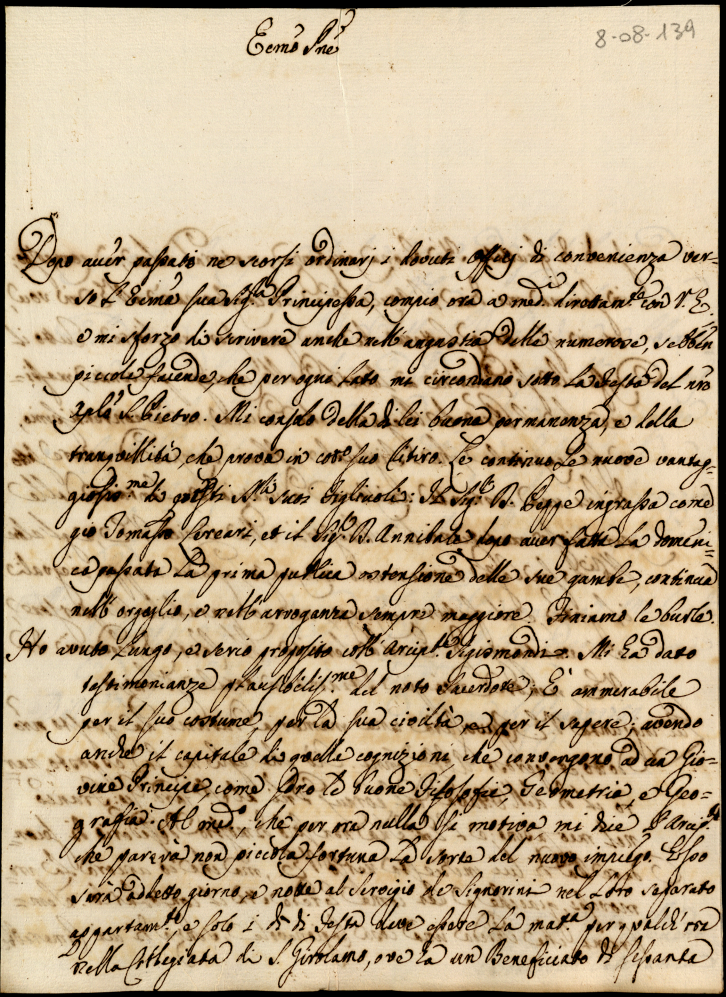 8-08-139
Ecmo Sne
Dopo aver passato ne scorsi ordinarj i dovuti officj di convenienza ver=
so l'Ecma sua Sig.ra Principessa, compio ora a med.i direttam.te con V. E.
e mi sforzo di scrivere anche nell'angustia delle numerose, sebben
piccole faccende, che per ogni lato mi circondano sotto la festa del nro
S. Pietro. Mi consolo della di lei buona permanenza, e della
tranquillità, che prova in cot.o suo ritiro. Le continuo le nuove vantag=
giosiss.me di questi suoi figliuoli: Il Sig.r D. Beppe ingrassa come
gio Tomasso, et il Sig.r D. Annibale dopo aver fatta la Domeni=
ca passata la prima publica ostensione delle sue gambe, continua
nell'orgoglio, e nell'arroganza sempre maggiore. Finiamo le burle.
Ho avuto lungo, e serio proposito coll'Arcip.te Sigismondi. Mi ha dato
testimonianze plausibiliss.me del noto Sacerdote; È ammirabile
per il suo costume, per la sua civiltà, e per il sapere; avendo
anche il capitale di quelle cognizioni, che convengono ad un Gio=
vine Principe, come sono le buone Filosofie, Geometria, e Geo=
grafia. Al med.o, che per ora nulla si motiva mi dice l'Arcip.te
che pareva non piccola fortuna la sorte del nuovo impiego. Esso
sarà addetto giorno, e notte al servigio de Signorini nel loro separato
appartam.to, e solo i dì di festa deve essere la mat.a per qualch'ora
nella Collegiata di S. Girolamo, ove ha un Beneficiato di sessanta